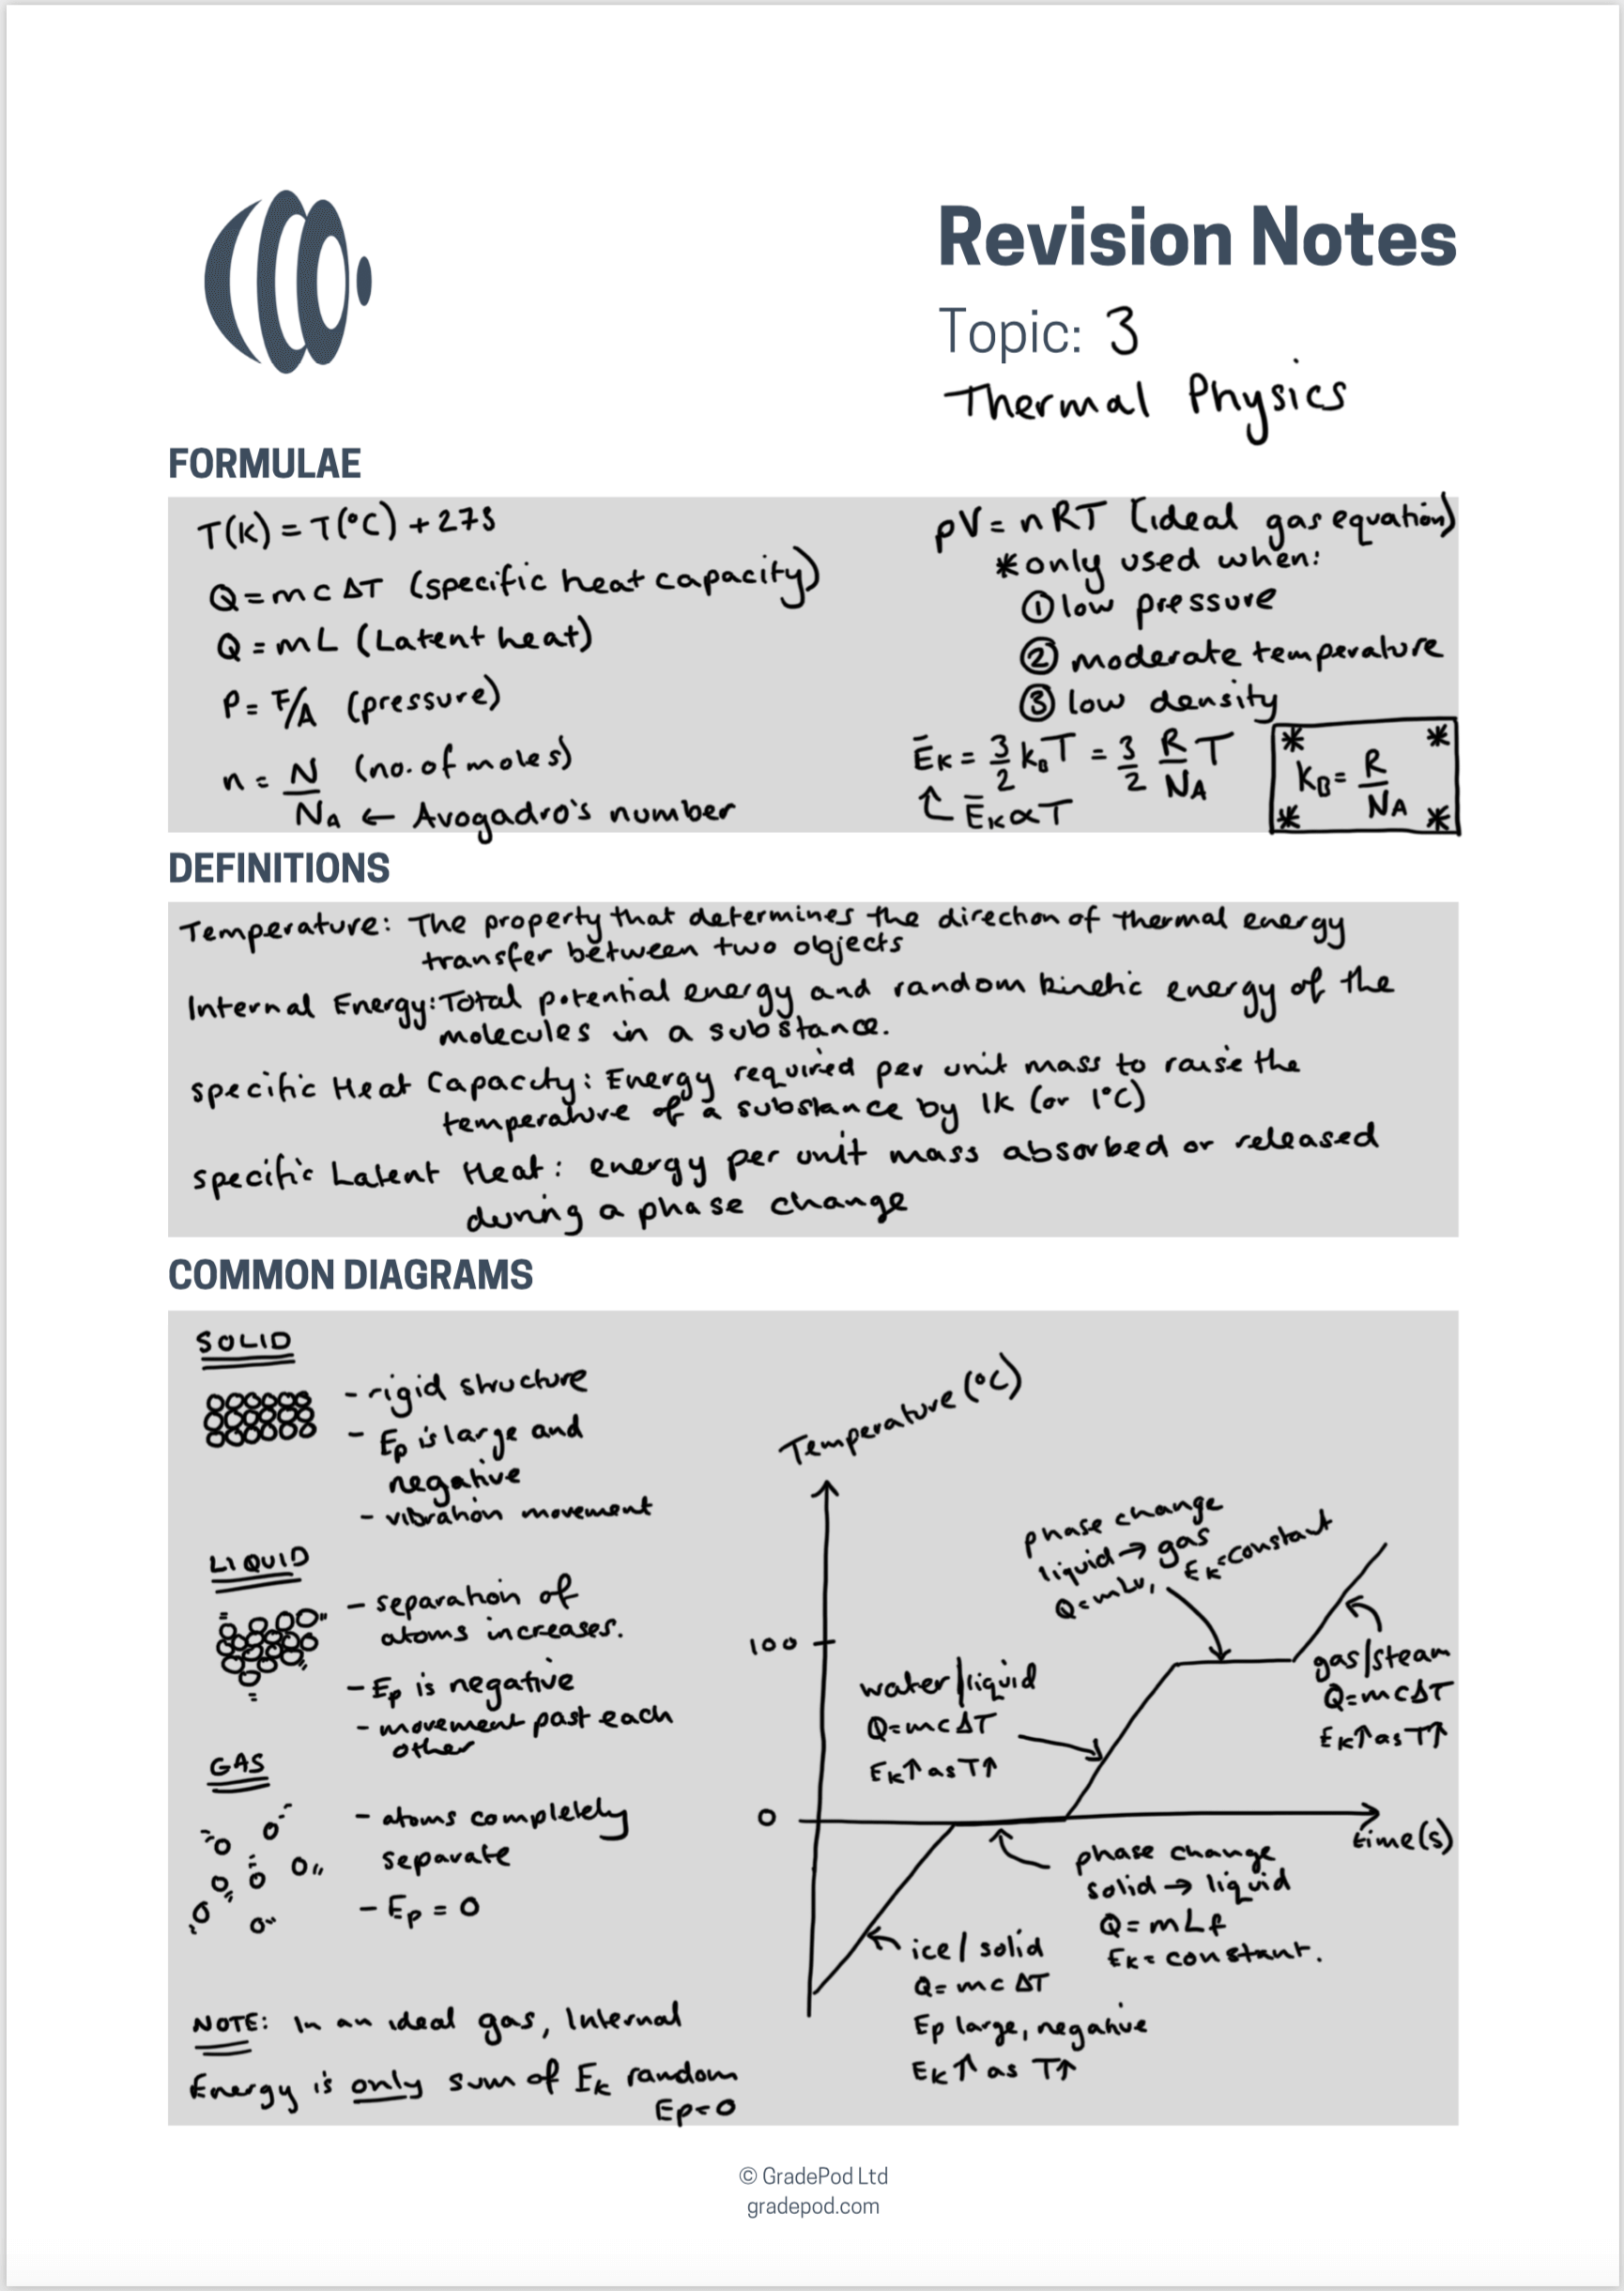 Revision Notes
Topic: 3
Thermal Physics
FORMULAE
T(K) = T(°C) + 273
Q = mcΔT (specific heat capacity)
Q = mL (Latent heat)
P = F/A (pressure)
n = N/NA (no. of moles)
NA ← Avogadro's number
pV = nRT (ideal gas equation)
* only used when:
① low pressure
② moderate temperature
③ low density
ĒK = 3/2 kBT = 3/2 R/NA T
ĒK ∝ T
* *
kB = R/NA
* *
DEFINITIONS
Temperature: The property that determines the direction of thermal energy
transfer between two objects
Internal Energy: Total potential energy and random kinetic energy of the
molecules in a substance.
specific Heat Capacity: Energy required per unit mass to raise the
temperature of a substance by 1K (or 1°C)
specific Latent Heat: energy per unit mass absorbed or released
during a phase change
COMMON DIAGRAMS
SOLID
- rigid structure
- Ep is large and
negative
- vibration movement
LIQUID
- separation of
atoms increases.
- Ep is negative
- movement past each
other
GAS
- atoms completely
separate
- Ep = 0
NOTE: In an ideal gas, Internal
Energy is only sum of EK random
Ep=0
Temperature (°C)
100
0
time(s)
phase change
liquid → gas
Q=mLv, EK=constant
gas/steam
Q=mcΔT
EK↑ as T↑
water/liquid
Q=mcΔT
EK↑ as T↑
phase change
solid → liquid
Q=mLf
EK= constant.
ice/solid
Q= mcΔT
Ep large, negative
EK↑ as T↑
© GradePod Ltd
gradepod.com